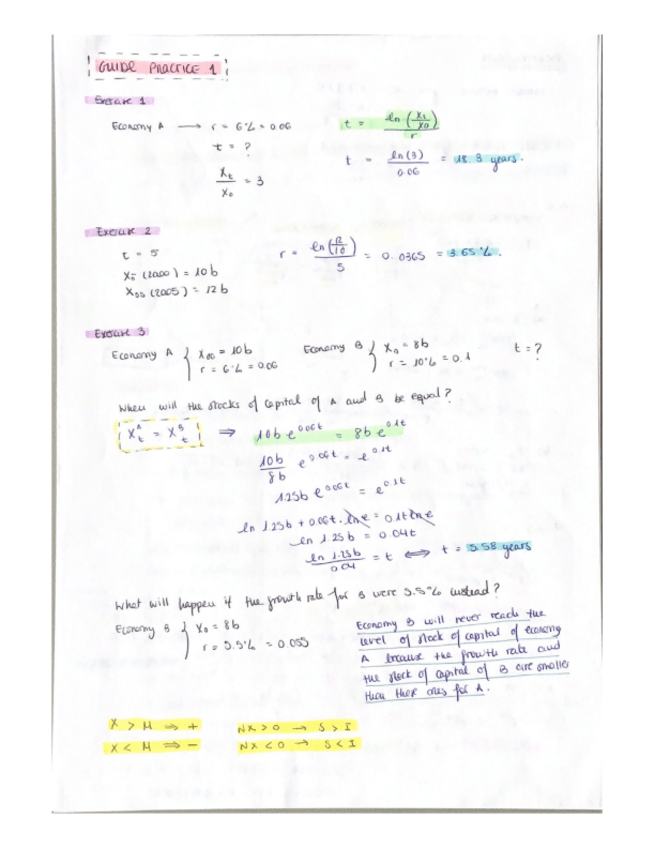 GUIDE PRACTICE 1
Exercise 1
Economy A ⟶ r = 6% = 0.06
t = ?
Xt / X0 = 3
t = ln (Xt / X0) / r
t = ln(3) / 0.06 = 18.3 years.
Exercise 2
t = 5
(2000) = 10b
(2005) = 12b
r = ln (12 / 10) / 5 = 0.0365 = 3.65%.
Exercise 3
Economy A { = 10b
r = 6% = 0.06
Economy B { X0 = 8b
r = 10% = 0.1
t = ?
When will the stocks of capital of A and B be equal?
X^A_t = X^B_t ⇒ 10b e^0.06t = 8b e^0.1t
10b / 8b e^0.06t = e^0.1t
1.25b e^0.06t = e^0.1t
ln 1.25b + 0.06t · ln e = 0.1t ln e
ln 1.25b = 0.04t
ln 1.25b / 0.04 = t ⟺ t = 5.58 years
What will happen if the growth rate for B were 5.5% instead?
Economy B { X0 = 8b
r = 5.5% = 0.055
Economy B will never reach the
level of stock of capital of economy
A because the growth rate and
the stock of capital of B are smaller
than ones for A.
X > M ⇒ +
X < M ⇒ −
NX > 0 → S > I
NX < 0 → S < I